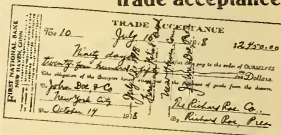 trade acceptance
TRADE ACCEPTANCE
FIRST NATIONAL BANK
NEW HAVEN, CONN.
No 10
July 16
1918
$2450.00
Ninety days
pay to the order of OURSELVES
Twenty four hundred fifty
Dollars
The obligation of the acceptor hereof arises out of the purchase of goods from the drawer
To John Doe & Co
New York City
Due October 14 1918
The Richard Roe Co.
By Richard Roe, Pres